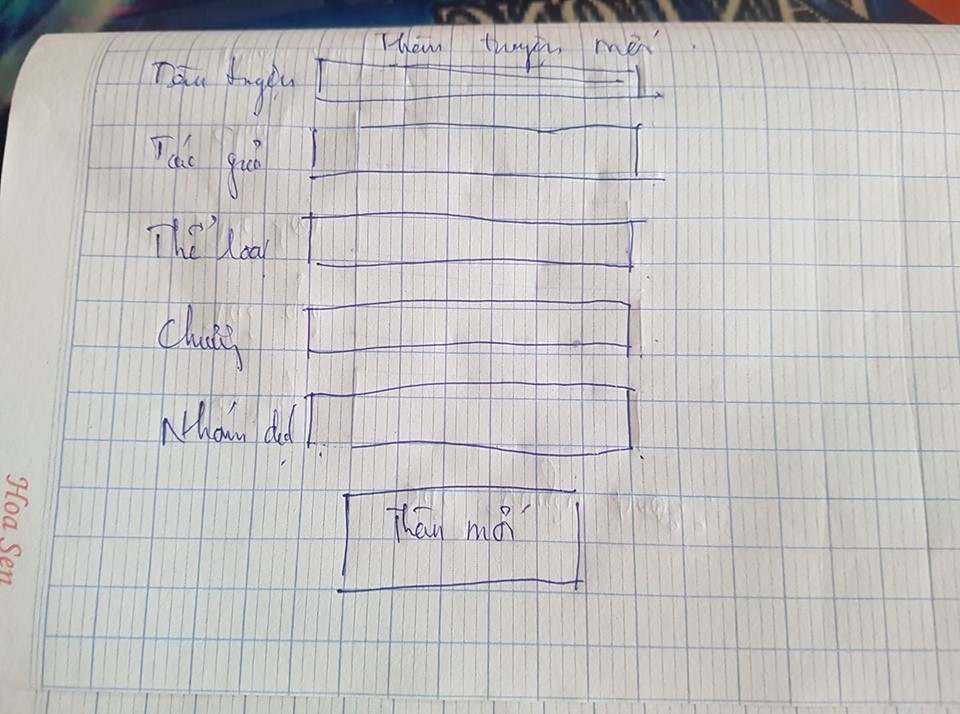 Thêm truyện mới.
Tên truyện
Tác giả
Thể loại
Chương
Nhóm dịch
Thêm mới
Hoa Sen